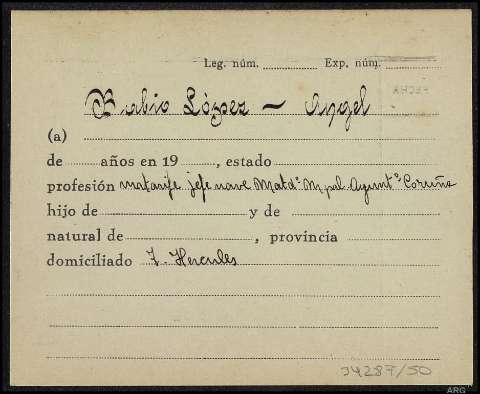 Leg. núm. Exp. núm.
FECHA
Rubio López - Angel
(a)
de años en 19 , estado
profesión matarife jefe nave Matdº Mpal. Ayuntº Coruña
hijo de y de
natural de , provincia
domiciliado T. Hercules
34287/50
ARG